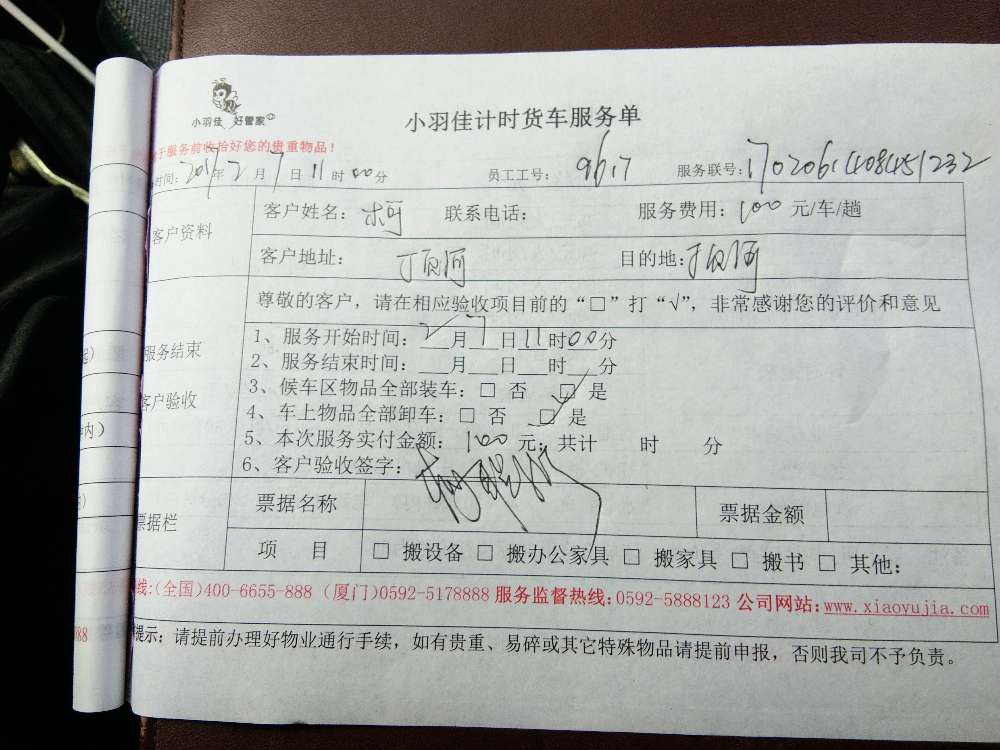 小羽佳 好管家
小羽佳计时货车服务单
于服务前收拾好您的贵重物品！
时间：2017年2月7日11时00分 员工工号：9617 服务联号：1702061408451232
客户资料
客户姓名： 联系电话： 服务费用：100元/车/趟
客户地址： 目的地：
尊敬的客户，请在相应验收项目前的“□”打“√”，非常感谢您的评价和意见
服务结束
客户验收
1、服务开始时间：2月7日11时00分
2、服务结束时间：___月___日___时___分
3、候车区物品全部装车：□ 否 □ 是
4、车上物品全部卸车：□ 否 □ 是
5、本次服务实付金额：100元；共计 时 分
6、客户验收签字：
票据栏
票据名称 票据金额
项 目 □ 搬设备 □ 搬办公家具 □ 搬家具 □ 搬书 □ 其他：
线：(全国)400-6655-888 (厦门)0592-5178888 服务监督热线：0592-5888123 公司网站：www.xiaoyujia.com
提示：请提前办理好物业通行手续，如有贵重、易碎或其它特殊物品请提前申报，否则我司不予负责。